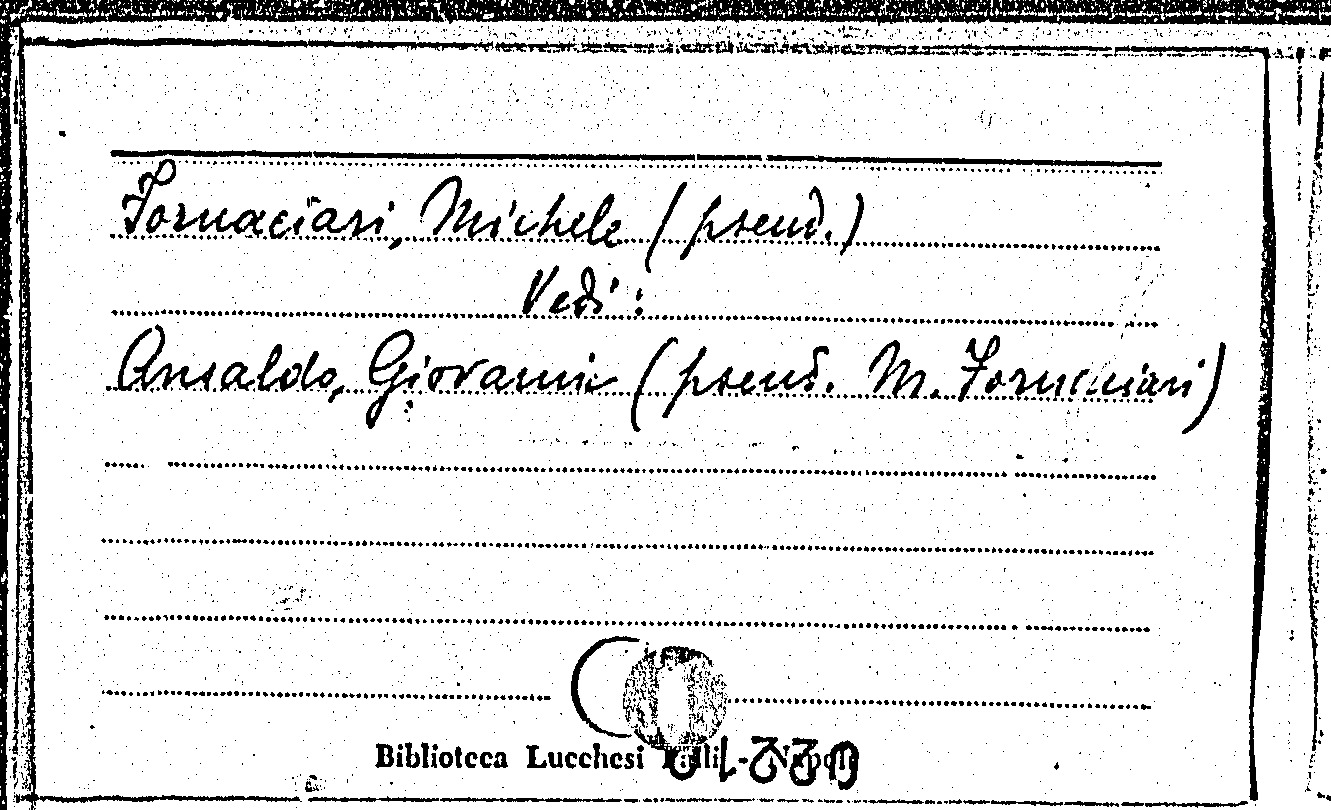 Fornaciari, Michele (pseud.)
Vedi:
Ansaldo, Giovanni (pseud. M. Fornaciari)
Biblioteca Lucchesi Palli - Napoli